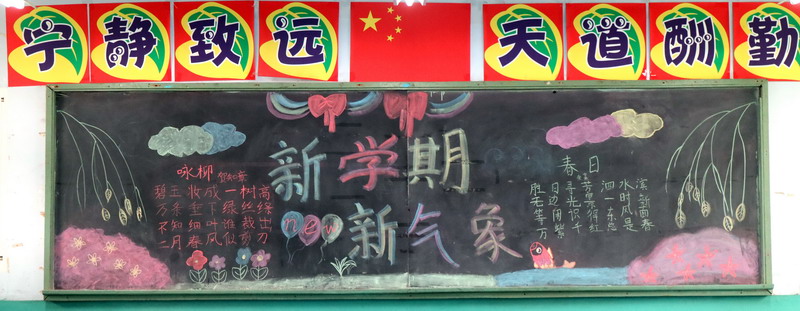 宁静致远 天道酬勤
新学期
新气象
new
咏柳
贺知章
碧玉妆成一树高
万条垂下绿丝绦
不知细叶谁裁出
二月春风似剪刀
春日
胜日寻芳泗水滨
无边光景一时新
等闲识得东风面
万紫千红总是春